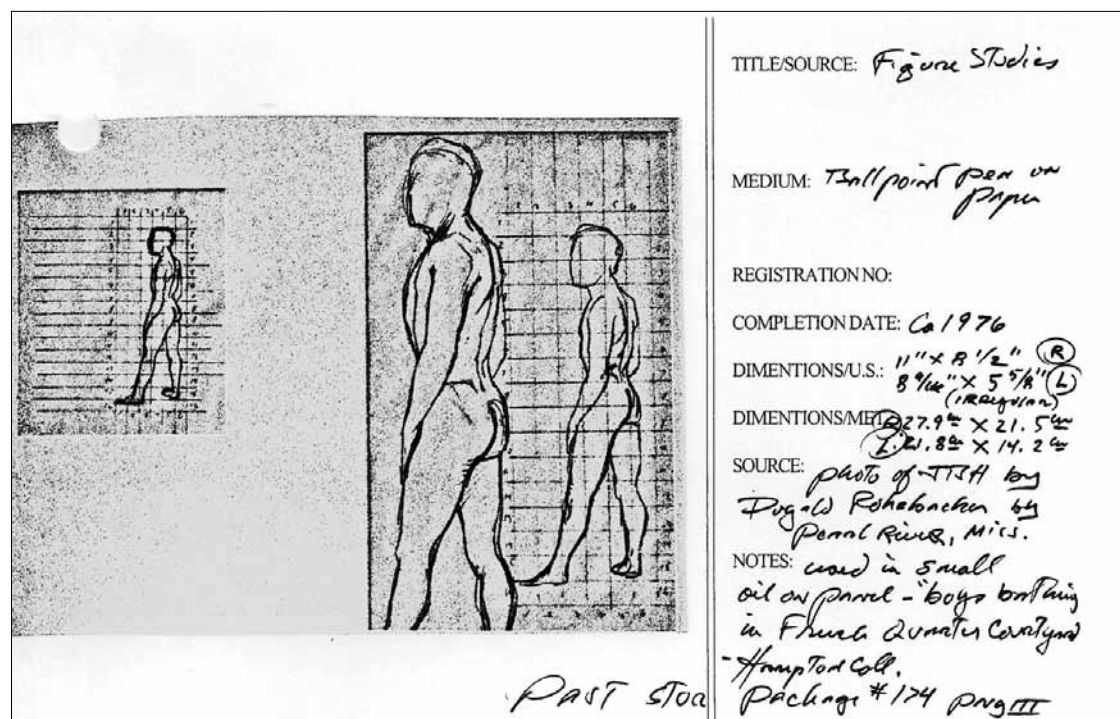 TITLE/SOURCE: Figure Studies
MEDIUM: Ballpoint pen on
paper
REGISTRATION NO:
COMPLETION DATE: Ca 1976
DIMENTIONS/U.S.: 11" X 8 1/2" R
8 9/16" X 5 5/8" L
(irregular)
DIMENTIONS/MET 27.9 cm X 21.5 cm
L .8 cm X 14.2 cm
SOURCE: photo of by
by
Pearl River, Miss.
NOTES: used in small
oil on panel - "boys bathing
in French Quarter Courtyard
- Hampton Coll.
Package # 174 III
PAST